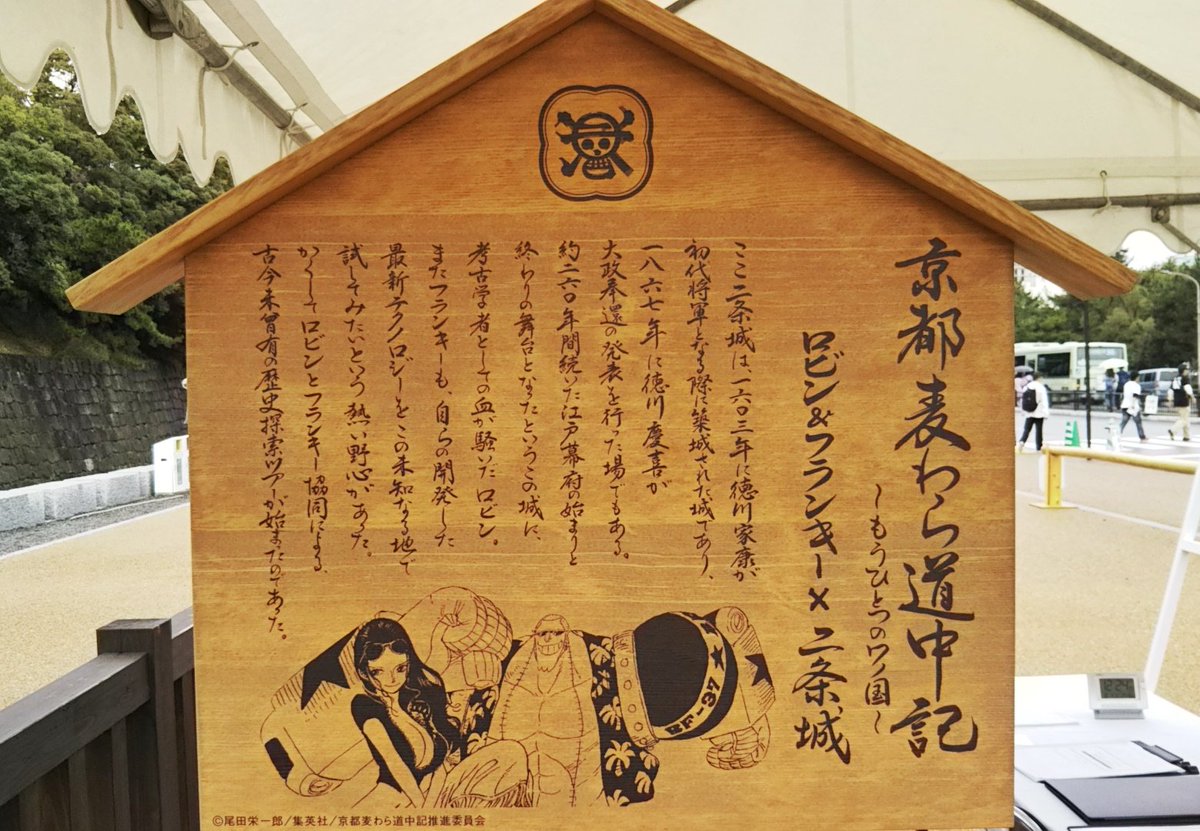 京都麦わら道中記
〜もうひとつのワノ国〜
ロビン&フランキー×二条城
ここ二条城は、一六〇三年に徳川家康が
初代将軍となる際に築城された城であり、
一八六七年に徳川慶喜が
大政奉還の発表を行った場でもある。
約二六〇年間続いた江戸幕府の始まりと
終わりの舞台となったというこの城に、
考古学者としての血が騒いだロビン。
またフランキーも、自らの開発した
最新テクノロジーをこの未知なる地で
試してみたいという熱い野心があった。
かくしてロビンとフランキー協同による、
古今未曾有の歴史探索ツアーが始まったのであった。
BF-37
©尾田栄一郎/集英社/京都麦わら道中記推進委員会